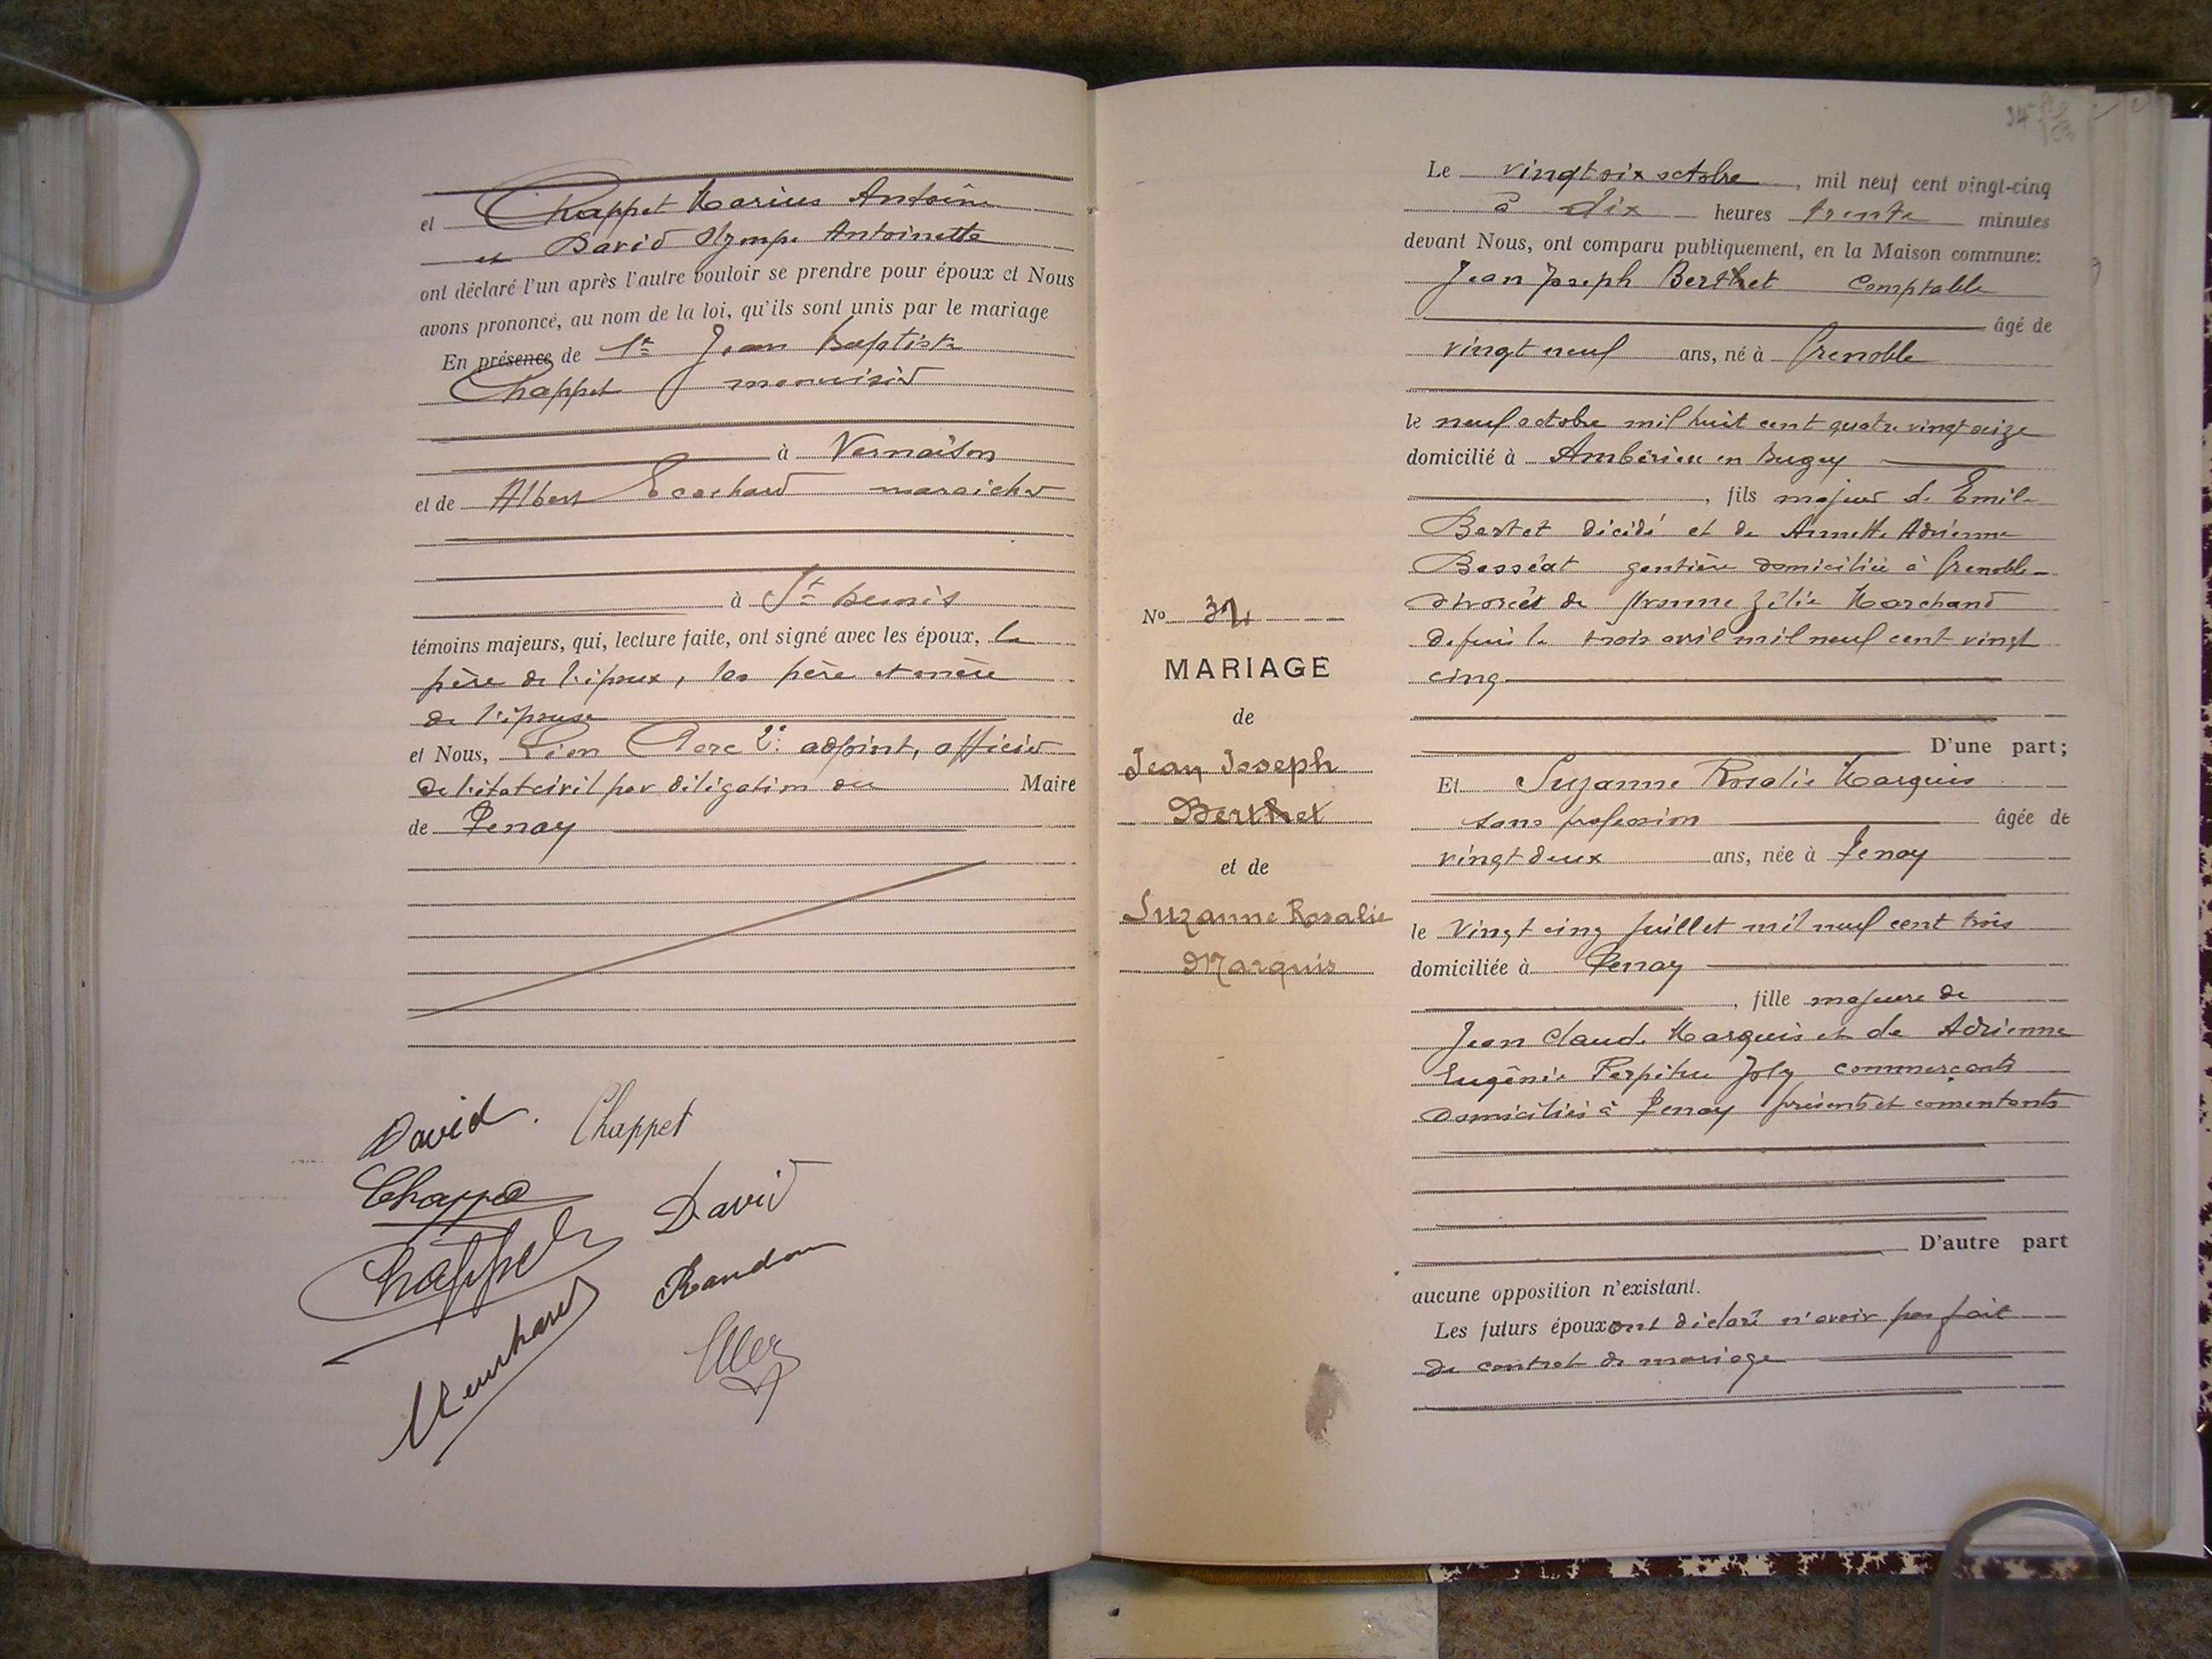 et Chappet Marius Antoine
et David Olympe Antoinette
ont déclaré l'un après l'autre vouloir se prendre pour époux et Nous
avons prononcé, au nom de la loi, qu'ils sont unis par le mariage
En présence de 1° Jean Baptiste
Chappet menuisier
à Vernaison
et de Albert Ecochard maraicher
à St Denis
témoins majeurs, qui, lecture faite, ont signé avec les époux, le
père de l'époux, les père et mère
de l'épouse
et Nous, Léon Clerc 2e adjoint, officier
de l'état civil par délégation du Maire
de Tenay
David. Chappet
Chappet
David
Chappet
Randon
Clerc
34
Le vingt six octobre, mil neuf cent vingt-cinq
à dix heures trente minutes
devant Nous, ont comparu publiquement, en la Maison commune:
Jean Joseph Berthet Comptable
âgé de
vingt neuf ans, né à Grenoble
le neuf octobre mil huit cent quatre vingt seize
domicilié à Ambérieu en Bugey
, fils majeur de Emile
Bertet décédé et de Annette Adrienne
Besséat gantière domiciliée à Grenoble
divorcé de Yvonne Zélie Marchand
depuis le trois avril mil neuf cent vingt
cinq
D'une part;
No 32
MARIAGE
de
Jean Joseph
Berthet
et de
Suzanne Rosalie
Marquis
Et Suzanne Rosalie Marquis
sans profession âgée de
vingt deux ans, née à Tenay
le Vingt cinq juillet mil neuf cent trois
domiciliée à Tenay
, fille majeure de
Jean Claude Marquis et de Adrienne
Eugénie Joly commerçants
domiciliés à Tenay présents et consentants
D'autre part
aucune opposition n'existant.
Les futurs époux ont déclaré n'avoir pas fait
de contrat de mariage